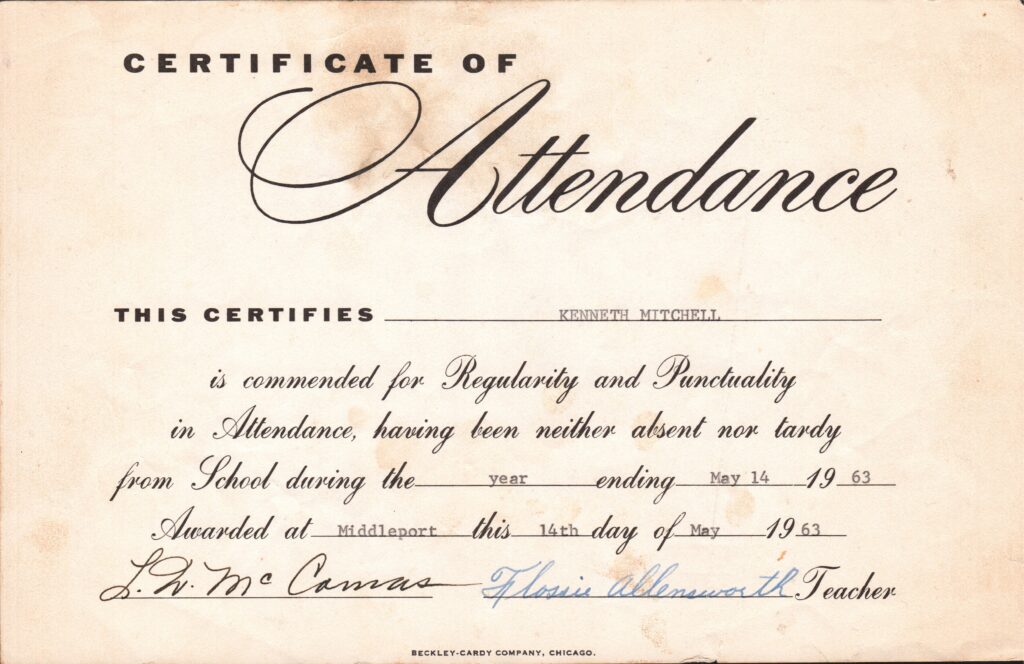 CERTIFICATE OF
Attendance
THIS CERTIFIES KENNETH MITCHELL
is commended for Regularity and Punctuality
in Attendance, having been neither absent nor tardy
from School during the year ending May 14 1963
Awarded at Middleport this 14th day of May 1963
L. D. Mc Comas Flossie Allensworth Teacher
BECKLEY-CARDY COMPANY, CHICAGO.